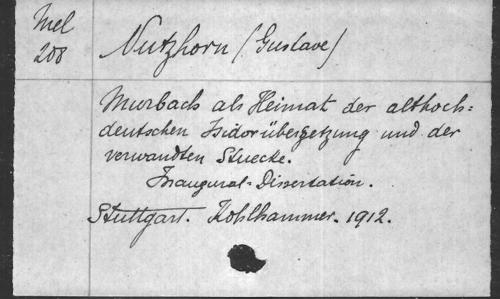 Mel
208
Nutzhorn (Gustave)
Murbach als Heimat der althoch=
deutschen Isidorübersetzung und der
verwandten Stuecke.
Inaugural-Dissertation.
Stuttgart. Kohlhammer. 1912.